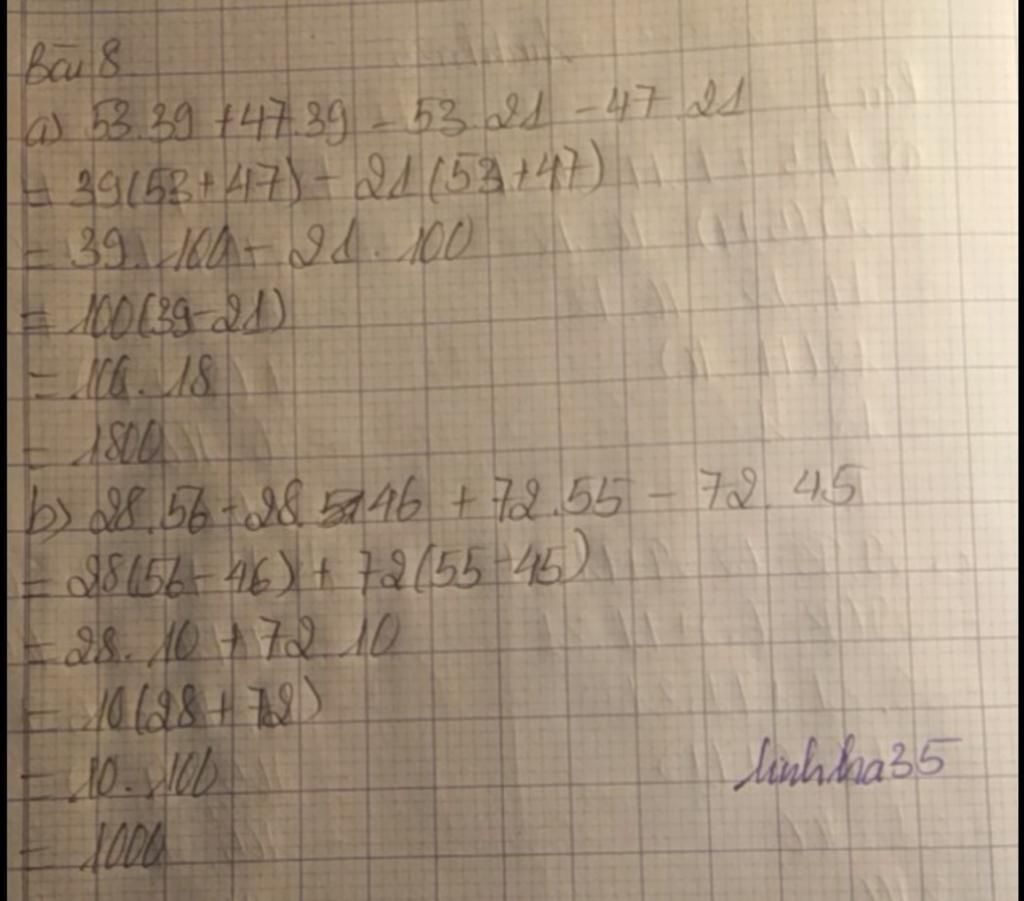 Bài 8
a) 53.39 + 47.39 - 53.21 - 47.21
= 39(53+47) - 21(53+47)
= 39.100 - 21.100
= 100(39-21)
= 100.18
= 1800
b) 28.56 - 28.46 + 72.55 - 72.45
= 28(56-46) + 72(55-45)
= 28.10 + 72.10
= 10(28+72)
= 10.100
linhha35
= 1000